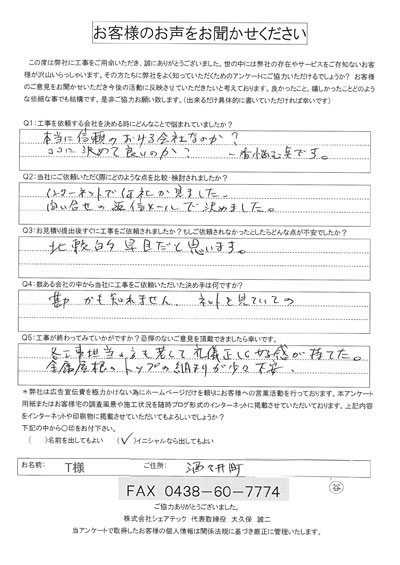 お客様のお声をお聞かせください
この度は弊社に工事をご用命いただき、誠にありがとうございました。世の中には弊社の存在やサービスをご存知ないお客様が沢山いらっしゃいます。その方たちに弊社をよく知っていただくためのアンケートにご協力いただけるでしょうか? お客様のご意見をお聞かせいただき今後の活動に反映させていただきたいと考えております。良かったこと、嬉しかったことどのような些細な事でも結構です。是非ご協力お願い致します。(出来るだけ具体的に書いていただければ幸いです)
Q1:工事を依頼する会社を決める時にどんなことで悩まれていましたか?
本当に信頼のおける会社なのか?
ココに決めて良いのか? 一番悩む点です。
Q2:当社にご依頼いただく際にどのような点を比較・検討されましたか?
インターネットで何社か見ました。
問い合せの返信メールで決めました。
Q3:お見積り提出後すぐに工事をご依頼されましたか?もしご依頼されなかったとしたらどんな点が不安でしたか?
比較的早目だと思います。
Q4:数ある会社の中から当社に工事をご依頼いただいた決め手は何ですか?
勘かも知れません。 ネットを見ていての
Q5:工事が終わってみていかがですか?忌憚のないご意見を頂戴できましたら幸いです。
各工事担当の方も若くて礼儀正しくやる感が持てた。
金属屋根のトップの納まりが少々不安。
*弊社は広告宣伝費を極力かけない為にホームページだけを頼りにお客様への営業活動を行っております。本アンケート用紙またはお客様宅の調査風景や施工状況を随時ブログ形式のインターネットに掲載させていただいております。上記内容をインターネットや印刷物に掲載させていただいてもよろしいでしょうか?
下記の中から○印をお付下さい。
( )名前を出してもよい (✓)イニシャルなら出してもよい
お名前: T様 ご住所: 酒々井町
FAX 0438-60-7774
谷
ご協力ありがとうございました。
株式会社シェアテック 代表取締役 大久保 誠二
当アンケートで取得したお客様の個人情報は関係法規に基づき厳正に管理いたします。